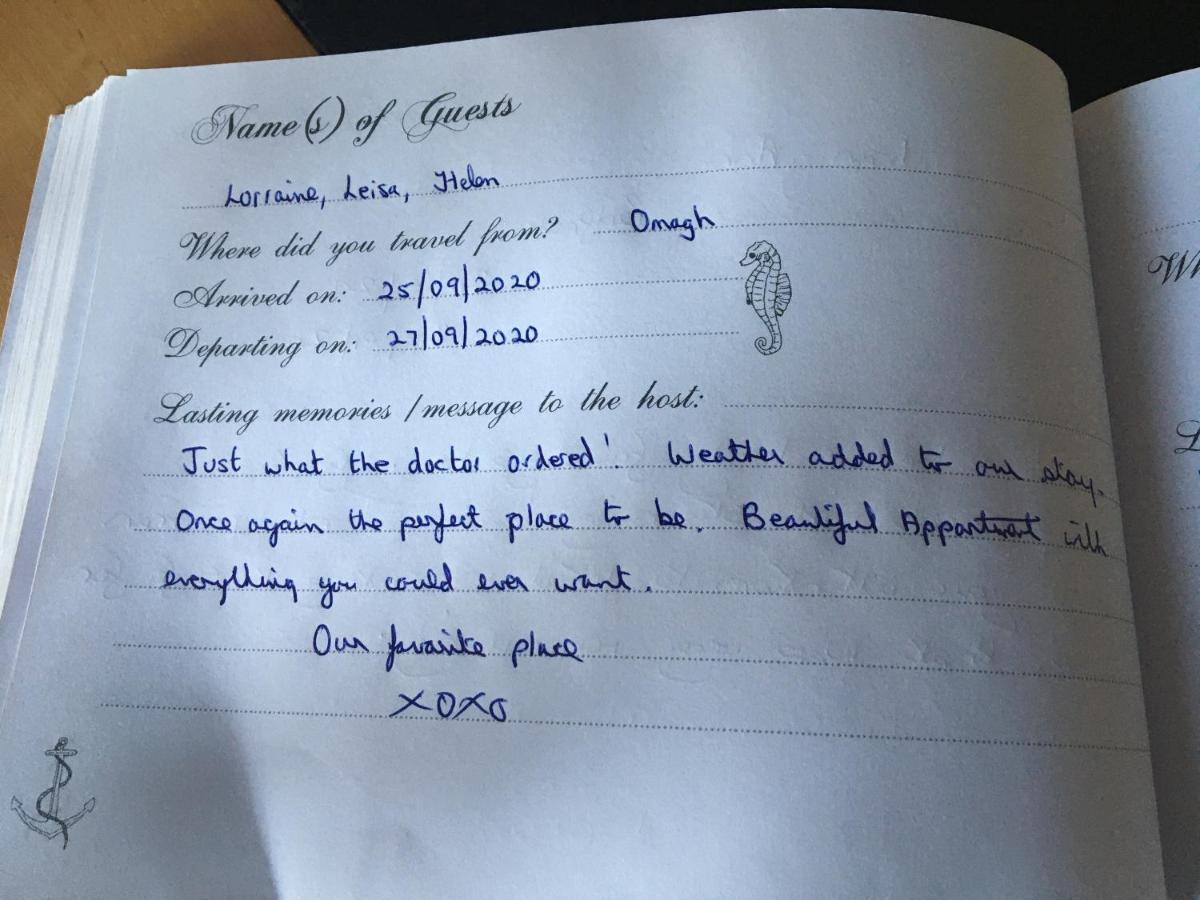 Name(s) of Guests
Lorraine, Leisa, Helen
Where did you travel from? Omagh
Arrived on: 25/09/2020
Departing on: 27/09/2020
Lasting memories / message to the host:
Just what the doctor ordered'. Weather added to our stay.
Once again the perfect place to be. Beautiful Appartment with
everything you could ever want.
Our favourite place
XOXO
Wh
L